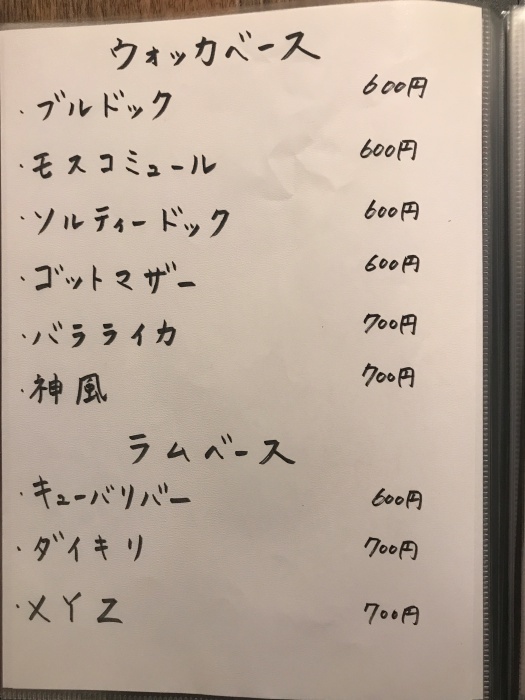 ウォッカベース
・ブルドック 600円
・モスコミュール 600円
・ソルティードック 600円
・ゴットマザー 600円
・バラライカ 700円
・神風 700円
ラムベース
・キューバリバー 600円
・ダイキリ 700円
・XYZ 700円